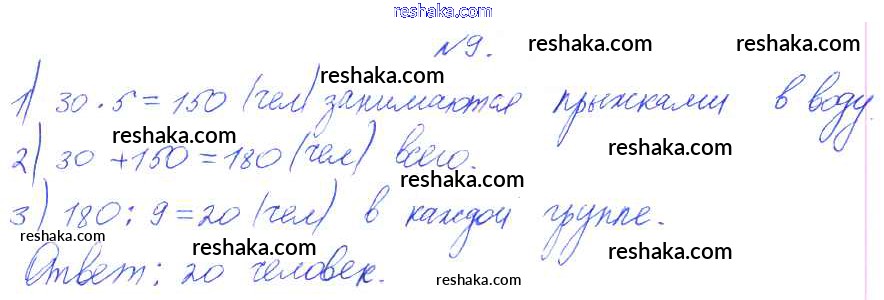 reshaka.com
№9. reshaka.com reshaka.com
reshaka.com
1) 30 · 5 = 150 (чел) занимаются прыжками в воду.
reshaka.com reshaka.com
2) 30 + 150 = 180 (чел) всего.
reshaka.com
3) 180 : 9 = 20 (чел) в каждой группе.
reshaka.com reshaka.com reshaka.com
Ответ: 20 человек.
reshaka.com